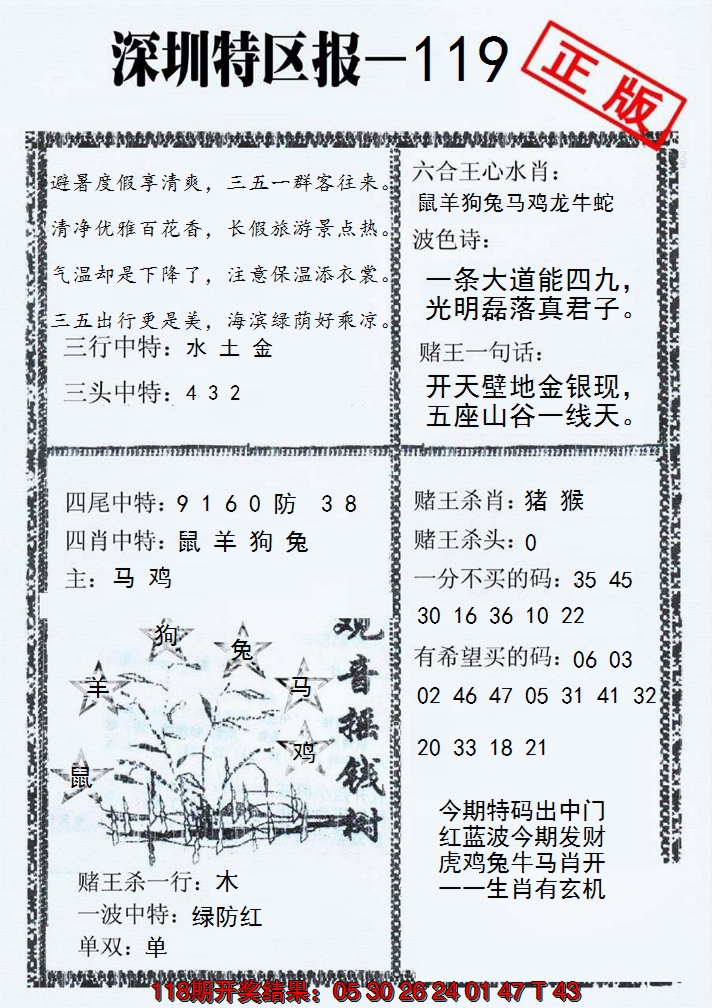 深圳特区报—119
正版
避暑度假享清爽，三五一群客往来。
清净优雅百花香，长假旅游景点热。
气温却是下降了，注意保温添衣裳。
三五出行更是美，海滨绿荫好乘凉。
三行中特：水 土 金
三头中特：4 3 2
六合王心水肖：
鼠羊狗兔马鸡龙牛蛇
波色诗：
一条大道能四九，
光明磊落真君子。
赌王一句话：
开天壁地金银现，
五座山谷一线天。
四尾中特：9 1 6 0 防 3 8
四肖中特：鼠 羊 狗 兔
主：马 鸡
狗
兔
羊
马
鸡
鼠
观音摇钱树
赌王杀一行：木
一波中特：绿防红
单双：单
赌王杀肖：猪 猴
赌王杀头：0
一分不买的码：35 45
30 16 36 10 22
有希望买的码：06 03
02 46 47 05 31 41 32
20 33 18 21
今期特码出中门
红蓝波今期发财
虎鸡兔牛马肖开
一一生肖有玄机
118期开奖结果：05 30 26 24 01 47 T 43